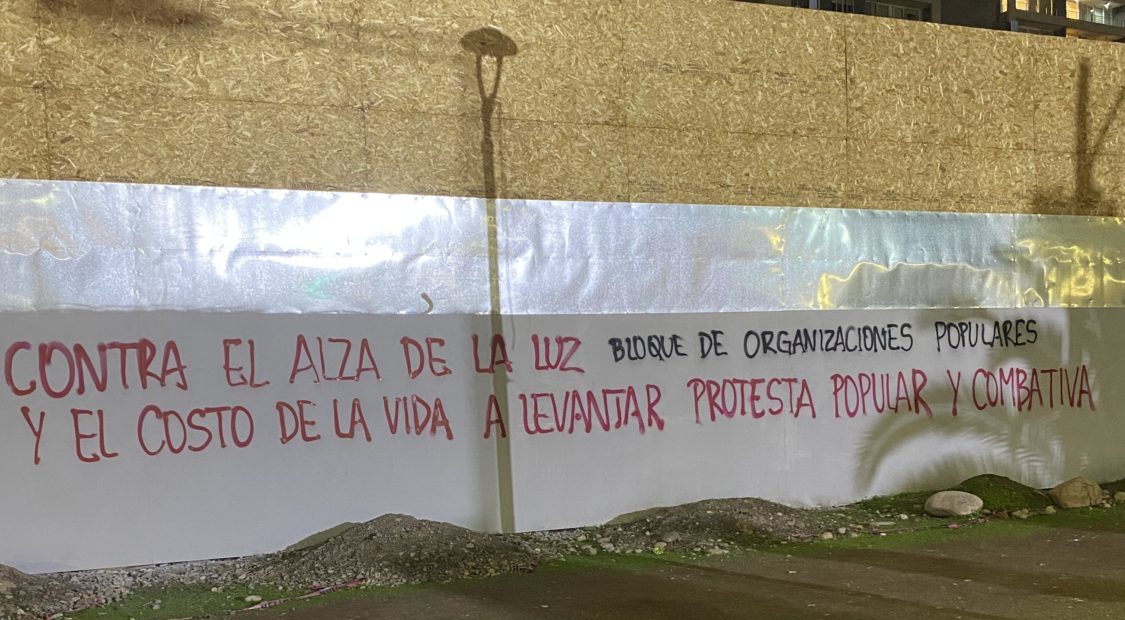 CONTRA EL ALZA DE LA LUZ BLOQUE DE ORGANIZACIONES POPULARES
Y EL COSTO DE LA VIDA A LEVANTAR PROTESTA POPULAR Y COMBATIVA